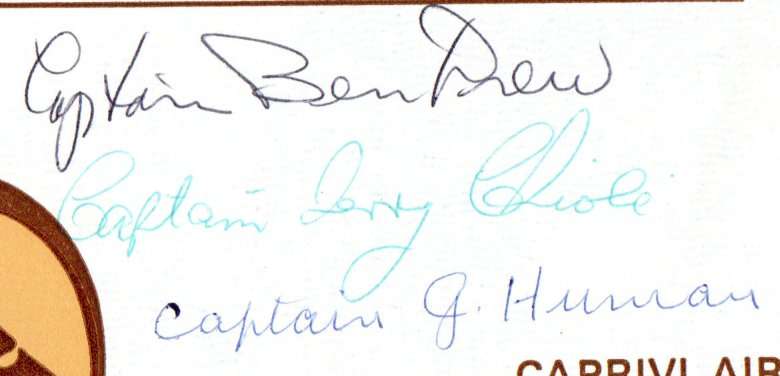 Captain Ben Drew
Captain Jerry Chioli
Captain J. Human
CAPRIVI AIR